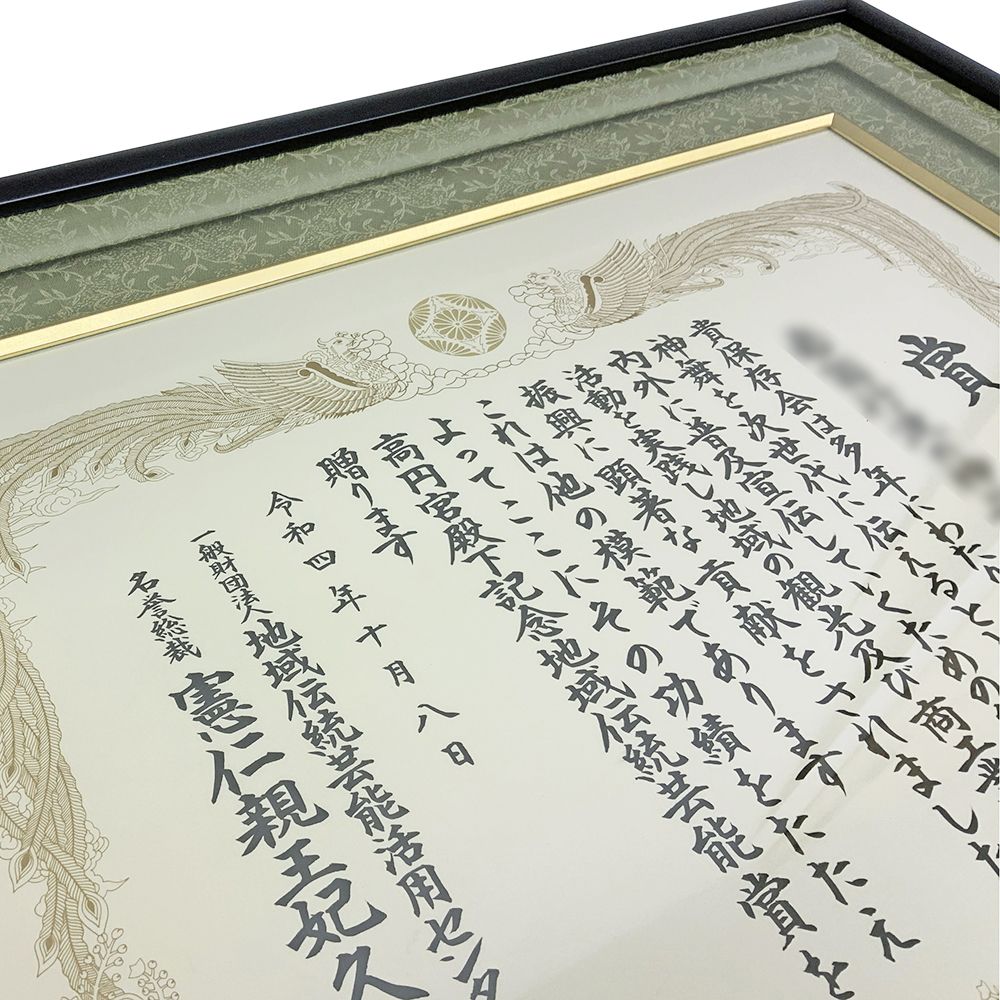 賞
貴保存会は多年にわた
神舞を次世代に伝えると
内外に普及宣伝していくための
活動を実践し地域の観光及び商工業
振興に顕著な貢献をされました
これは他の模範であります
よってここにその功績をたたえ
高円宮殿下記念地域伝統芸能賞を
贈ります
令和四年十月八日
一般財団法人地域伝統芸能活用センタ
名誉総裁 憲仁親王妃久